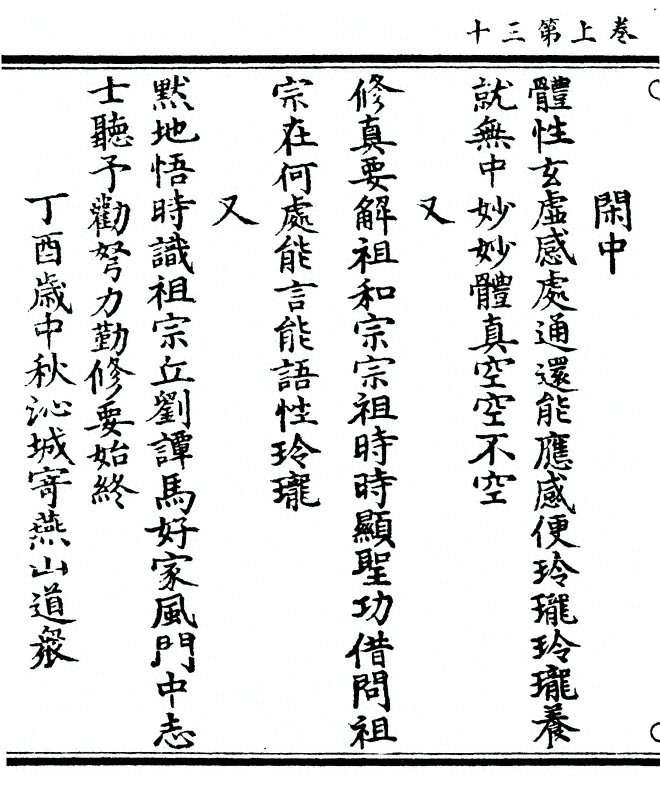 卷上第三十
閑中
體性玄虛感處通還能應感便玲瓏玲瓏養
就無中妙妙體真空空不空
又
修真要解祖和宗宗祖時時顯聖功借問祖
宗在何處能言能語性玲瓏
又
默地悟時識祖宗丘劉譚馬好家風門中志
士聽予勸努力勤修要始終
丁酉歲中秋沁城寄燕山道衆